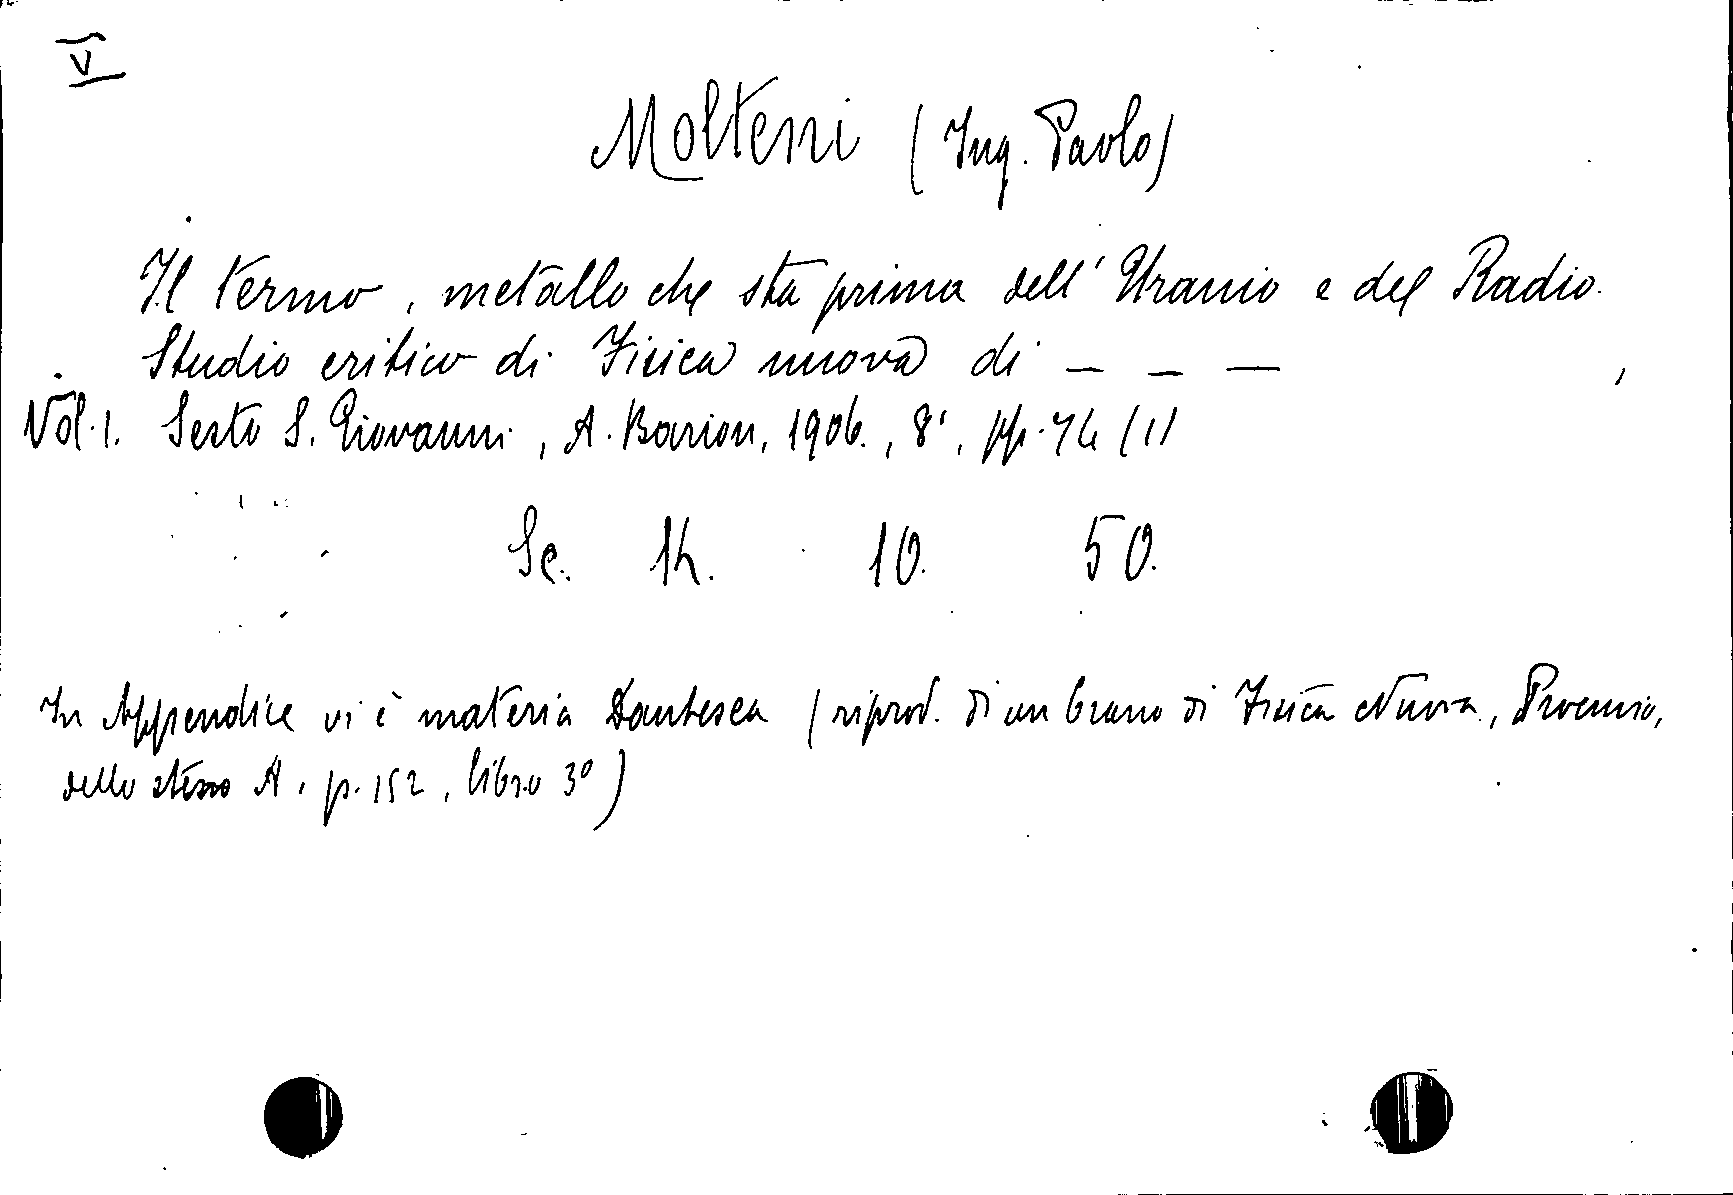 V
Molteni (Ing. Paolo)
Il termo, metallo che sta prima dell'Uranio e del Radio.
Studio critico di Fisica nuova di _ _ _ ,
Vol. 1. Sesto S. Giovanni, A. Barion, 1906., 8°, pp. 74 (1)
Sc. 14. 10. 50.
In Appendice vi è materia Dantesca (riprod. di un brano di Fisica Nuova, Proemio,
dello stesso A. p. 152, libro 3°)